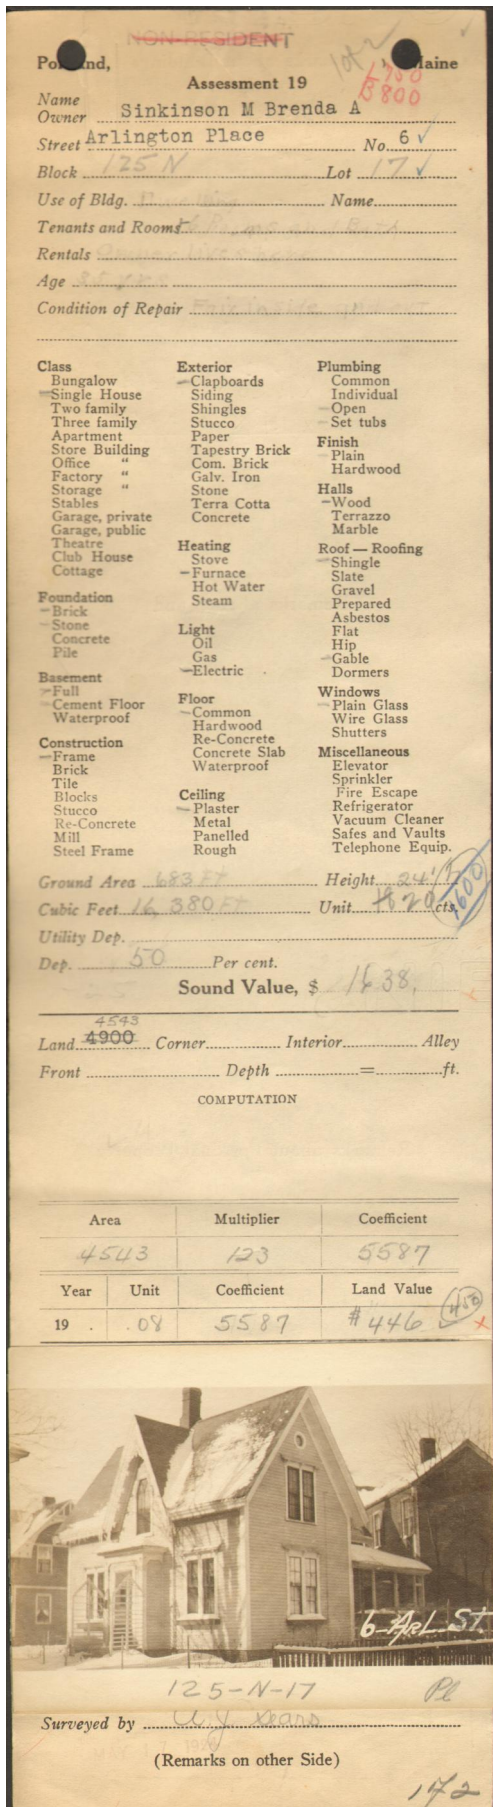 NON-RESIDENT
lot 2
Portland, Maine
L 450
B 800
Assessment 19
Name
Owner Sinkinson M Brenda A
Street Arlington Place No. 6 ✓
Block 125 N Lot 17 ✓
Use of Bldg. Dwelling Name
Tenants and Rooms 6 Rooms and Bath
Rentals Owner lives here
Age 85 yrs
Condition of Repair Fair inside
Class
Bungalow
Single House
Two family
Three family
Apartment
Store Building
Office "
Factory "
Storage "
Stables
Garage, private
Garage, public
Theatre
Club House
Cottage
Foundation
Brick
Stone
Concrete
Pile
Basement
Full
Cement Floor
Waterproof
Construction
Frame
Brick
Tile
Blocks
Stucco
Re-Concrete
Mill
Steel Frame
Exterior
Clapboards
Siding
Shingles
Stucco
Paper
Tapestry Brick
Com. Brick
Galv. Iron
Stone
Terra Cotta
Concrete
Heating
Stove
Furnace
Hot Water
Steam
Light
Oil
Gas
Electric
Floor
Common
Hardwood
Re-Concrete
Concrete Slab
Waterproof
Ceiling
Plaster
Metal
Panelled
Rough
Plumbing
Common
Individual
Open
Set tubs
Finish
Plain
Hardwood
Halls
Wood
Terrazzo
Marble
Roof — Roofing
Shingle
Slate
Gravel
Prepared
Asbestos
Flat
Hip
Gable
Dormers
Windows
Plain Glass
Wire Glass
Shutters
Miscellaneous
Elevator
Sprinkler
Fire Escape
Refrigerator
Vacuum Cleaner
Safes and Vaults
Telephone Equip.
Ground Area 683 FT Height 24'
Cubic Feet 16,380 FT Unit 20 cts.
1600
Utility Dep.
Dep. 50 Per cent.
Sound Value, $ 1638.
4543
Land 4900 Corner Interior Alley
Front Depth = ft.
COMPUTATION
Area Multiplier Coefficient
4543 123 5587
Year Unit Coefficient Land Value
19 . .08 5587 $446 450
6-ARL St.
125-N-17 Pl
Surveyed by A J Sears
(Remarks on other Side)
172